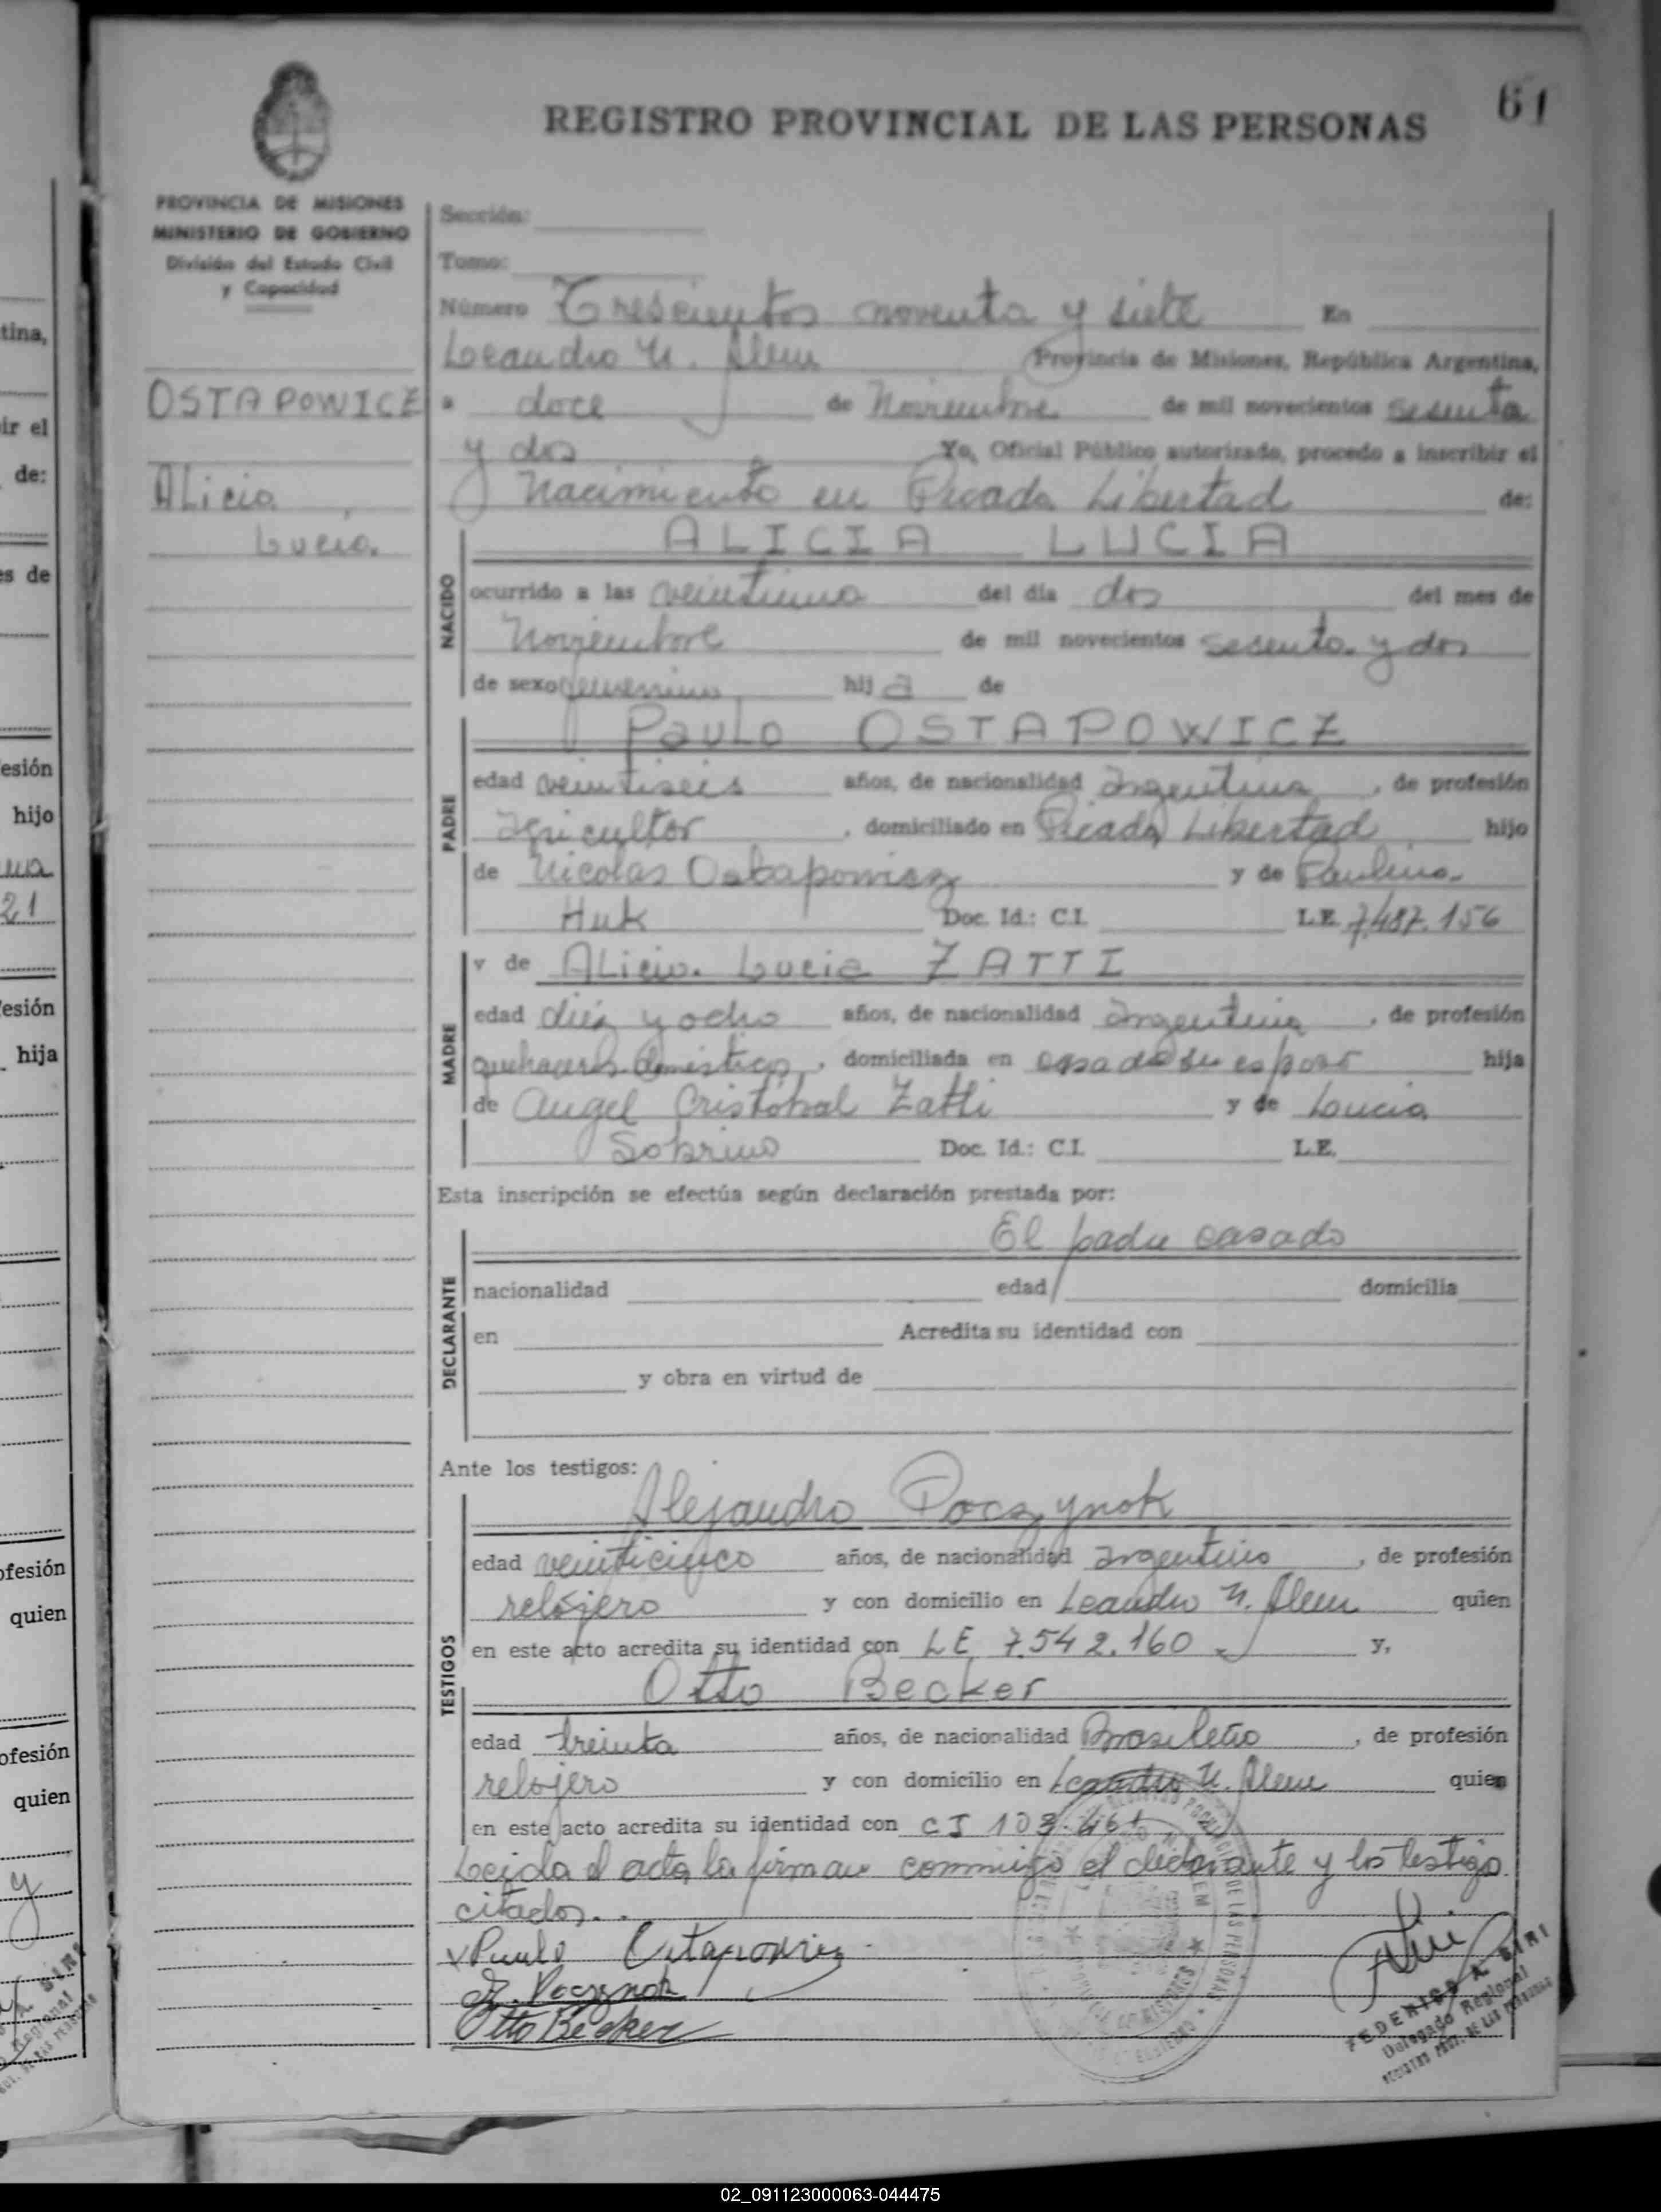 61
REGISTRO PROVINCIAL DE LAS PERSONAS
PROVINCIA DE MISIONES
MINISTERIO DE GOBIERNO
División del Estado Civil
y Capacidad
OSTAPOWICZ
Alicia
Lucia.
Sección:
Tomo:
Número Trescientos noventa y siete En
Leandro N. Alem Provincia de Misiones, República Argentina,
a doce de Noviembre de mil novecientos sesenta
y dos Yo, Oficial Público autorizado, procedo a inscribir el
Nacimiento en Picada Libertad de:
NACIDO
ALICIA LUCIA
ocurrido a las veintiuna del día dos del mes de
Noviembre de mil novecientos sesenta y dos
de sexo femenino hija de
PADRE
Paulo OSTAPOWICZ
edad veintiseis años, de nacionalidad argentina, de profesión
agricultor, domiciliado en Picada Libertad hijo
de Nicolas Ostapowicz y de Paulina
Huk Doc. Id.: C.I. L.E. 7.487.156
MADRE
y de Alicia Lucia ZATTI
edad diez y ocho años, de nacionalidad argentina, de profesión
quehaceres domésticos, domiciliada en casa de su esposo hija
de Angel Cristóbal Zatti y de Lucia
Sobrino Doc. Id.: C.I. L.E.
Esta inscripción se efectúa según declaración prestada por:
DECLARANTE
El padre casado
nacionalidad edad domicilia
en Acredita su identidad con
y obra en virtud de
Ante los testigos:
TESTIGOS
Alejandro Poczynok
edad veinticinco años, de nacionalidad argentino, de profesión
relojero y con domicilio en Leandro N. Alem quien
en este acto acredita su identidad con LE 7.542.160 y,
Otto Becker
edad treinta años, de nacionalidad Brasileño, de profesión
relojero y con domicilio en Leandro N. Alem quien
en este acto acredita su identidad con CI 103.461
Leida el acta la firman conmigo el declarante y los testigo
citados.
Paulo Ostapowicz
A. Poczynok
Otto Becker
FEDERICO A. SIRI
Delegado Regional
REGISTRO PROV. DE LAS PERSONAS
tina,
ir el
de:
es de
esión
hijo
21
esión
hija
ofesión
quien
ofesión
quien
y
02_091123000063-044475